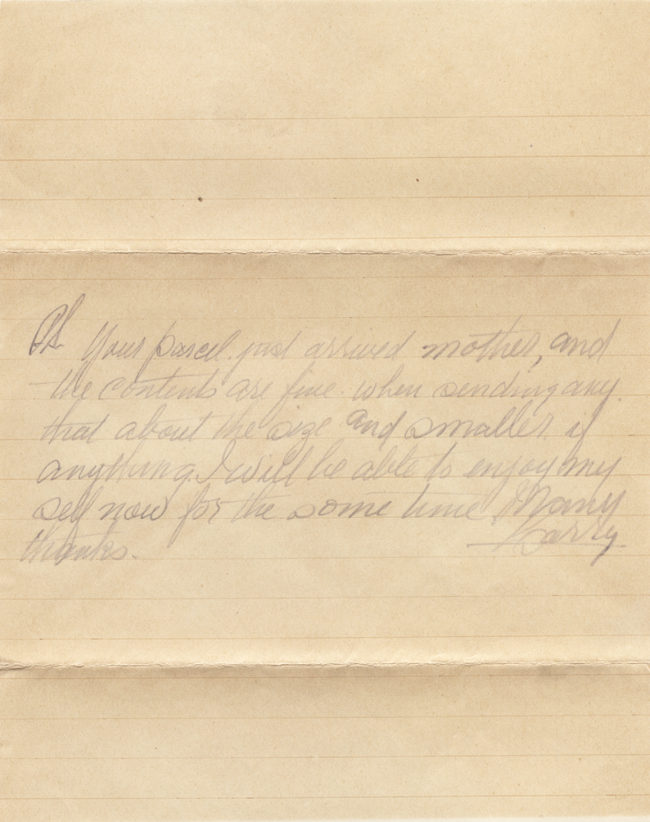 PS. Your parcel just arrived mother, and
the contents are fine. when sending any.
that about the size and smaller if
anything. I will be able to enjoy my
self now for the some time. Many
thanks. Harry.